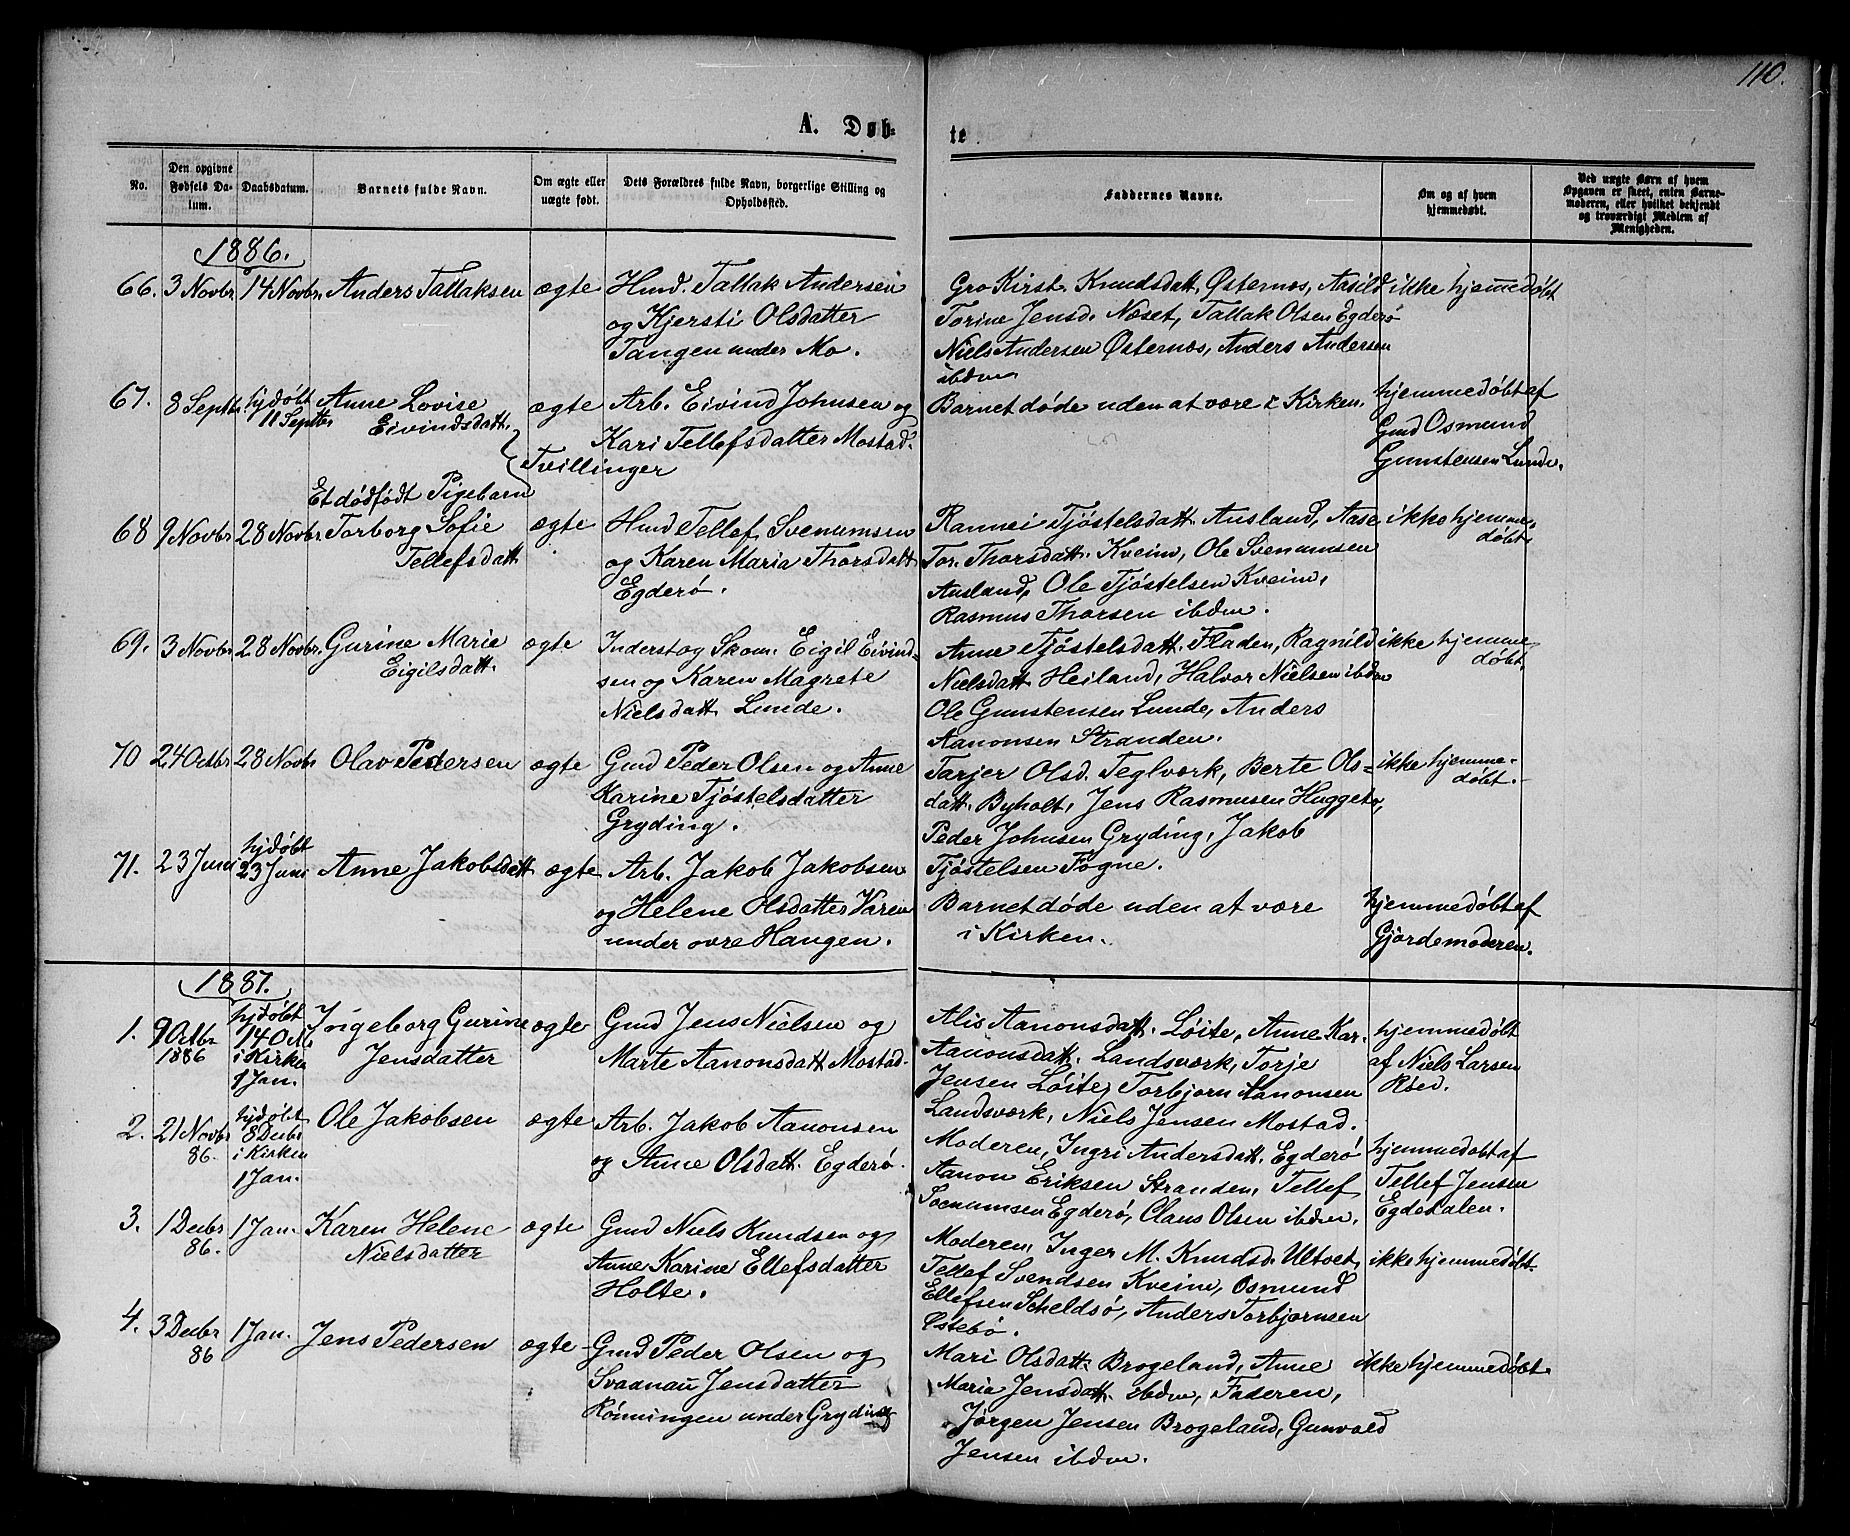 110.
A. Døb-
te
No.
Den opgivne Fødsels Da-
tum.
Daabsdatum.
Barnets fulde Navn.
Om ægte eller
uægte født.
Dets Forældres fulde Navn, borgerlige Stilling og
Opholdssted.
Faddernes Navne.
Om og af hvem
hjemmedøbt.
Ved uægte Børn af hvem
Opgaven er skeet, enten Barne-
moderen, eller hvilket bekjendt
og troværdigt Medlem af
Menigheden.
1886.
66. 3 Novbr 14 Novbr. Anders Tallaksen ægte Gmd. Tallak Andersen
og Kjersti Olsdatter
Tangen under Mo.
Gro Kirst. Knudsdatt. Østernes, Aasild
Torine Jensd. Næset, Tallak Olsen Egderø
Niels Andersen Østernes, Anders Andersen
ibdm
ikke hjemmedøbt
67. 8 Septbr. hjdøbt
11 Septbr. Anne Lovise
Eivindsdatt.
Et dødfødt Pigebarn
ægte
Tvillinger
Arb. Eivind Johnsen og
Kari Tellefsdatter Mostad.
Barnet døde uden at være i Kirken.
hjemmedøbt af
Gmd Osmund
Gunstensen Lunde.
68 9 Novbr 28 Novbr. Torborg Sofie
Tellefsdatt
ægte Gmd Tellef Svenumsen
og Karen Maria Thorsdatt
Egderø.
Rannei Tjøstelsdatt. Ausland, Aase
Tor. Thorsdatt. Kveim, Ole Svenumsen
Ausland, Ole Tjøstelsen Kveim,
Rasmus Thorsen ibdm.
ikke hjemme-
døbt.
69. 3 Novbr 28 Novbr. Gurine Marie
Eigilsdatt.
ægte Inderst og Skom. Eigil Eivind-
sen og Karen Magrete
Nielsdatt Lunde.
Anne Tjøstelsdatt. Fladen, Ragnild
Nielsdatt Heiland, Halvor Nielsen ibdm
Ole Gunstensen Lunde, Anders
Aanonsen Stranden.
ikke hjemme-
døbt.
70 24 Octbr 28 Novbr Olav Pedersen ægte Gmd Peder Olsen og Anne
Karine Tjøstelsdatter
Gryding.
Tarjer Olsd. Teglværk, Berte Ols-
datt. Byholt, Jens Rasmusen Huggeto,
Peder Johnsen Gryding, Jakob
Tjøstelsen Fogne.
ikke hjemme-
døbt.
71. 23 Juni hjdøbt
23 Juni Anne Jakobsdatt ægte Arb. Jakob Jakobsen
og Helene Olsdatter Varen
under øvre Haugen.
Barnet døde uden at være
i Kirken.
hjemmedøbt af
Gjordemoderen.
1887.
1. 9 Octbr
1886
hjdøbt
14 Octb
i Kirken
1 Jan.
Ingeborg Gurine
Jensdatter
ægte Gmd Jens Nielsen og
Marte Aanonsdatt Mostad.
Alis Aanonsdatt. Løite, Anne Kar.
Aanonsdatt. Landsværk, Torje
Jensen Løite, Torbjørn Aanonsen
Landsværk, Niels Jensen Mostad.
hjemmedøbt
af Niels Larsen
Roed.
2. 21 Novbr
86.
hjdøbt
8 Decbr
i Kirken
1 Jan.
Ole Jakobsen ægte Arb. Jakob Aanonsen
og Anne Olsdatt. Egderø.
Moderen, Ingri Andersdatt. Egderø
Aanon Eriksen Stranden, Tellef
Svenumsen Egderø, Claus Olsen ibdm.
hjemmedøbt af
Tellef Jensen
Egdedalen.
3. 1 Decbr
86. 1 Jan. Karen Helene
Nielsdatter
ægte Gmd Niels Knudsen og
Anne Karine Ellefsdatter
Holte.
Moderen, Inger M. Knudsd. Ultvet,
Tellef Svendsen Kveim, Osmund
Ellefsen Scheldsø, Anders Torbjørnsen
Østebø.
ikke hjemmedøbt.
4. 3 Decbr
86 1 Jan. Jens Pedersen ægte Gmd Peder Olsen og
Svaanau Jensdatter
Rønningen under Gryding
Mari Olsdatt. Brogeland, Anne
Maria Jensdatt. ibdm, Faderen,
Jørgen Jensen Brogeland, Gunvald
Jensen ibdm.
ikke hjemmedøbt.